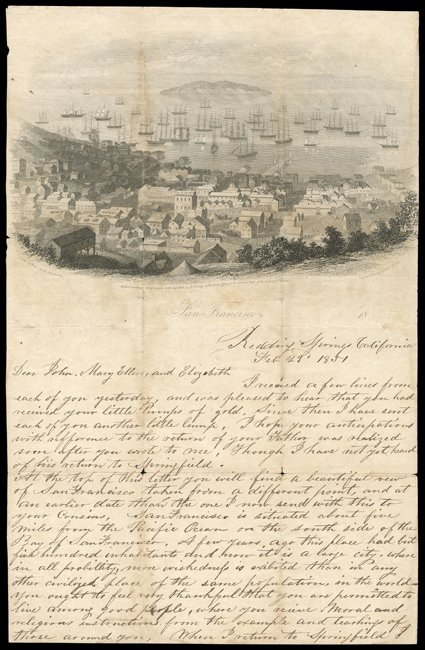 San Francisco 18
Redding Springs California
Feb 21st 1851
Dear John, Mary Ellen, and Elizabeth
I received a few lines from
each of you yesterday, and was pleased to hear that you had
received your little lumps of gold. Since then I have sent
each of you another little lump, I hope your anticipations
with refference to the return of your Father was realized
soon after you wrote to me, Though I have not yet heard
of his return to Springfield.
At the top of this letter you will find a beautiful view
of San Francisco taken from a different point, and at
an earlier date than the one I now send with this to
your Cousins. San Francisco is situated about five
miles from the Pacific Ocean on the south side of the
Bay of San Francisco. A few years ago this place had but
five hundred inhabitants and now it is a large city, where
in all probility, more wickedness is exibited than in any
other civilized place of the same population, in the world.
You ought to feel very thankful that you are permitted to
live among good people, where you recieve Moral and
religious instructions from the example and teaching of
those around you. When I return to Springfield I